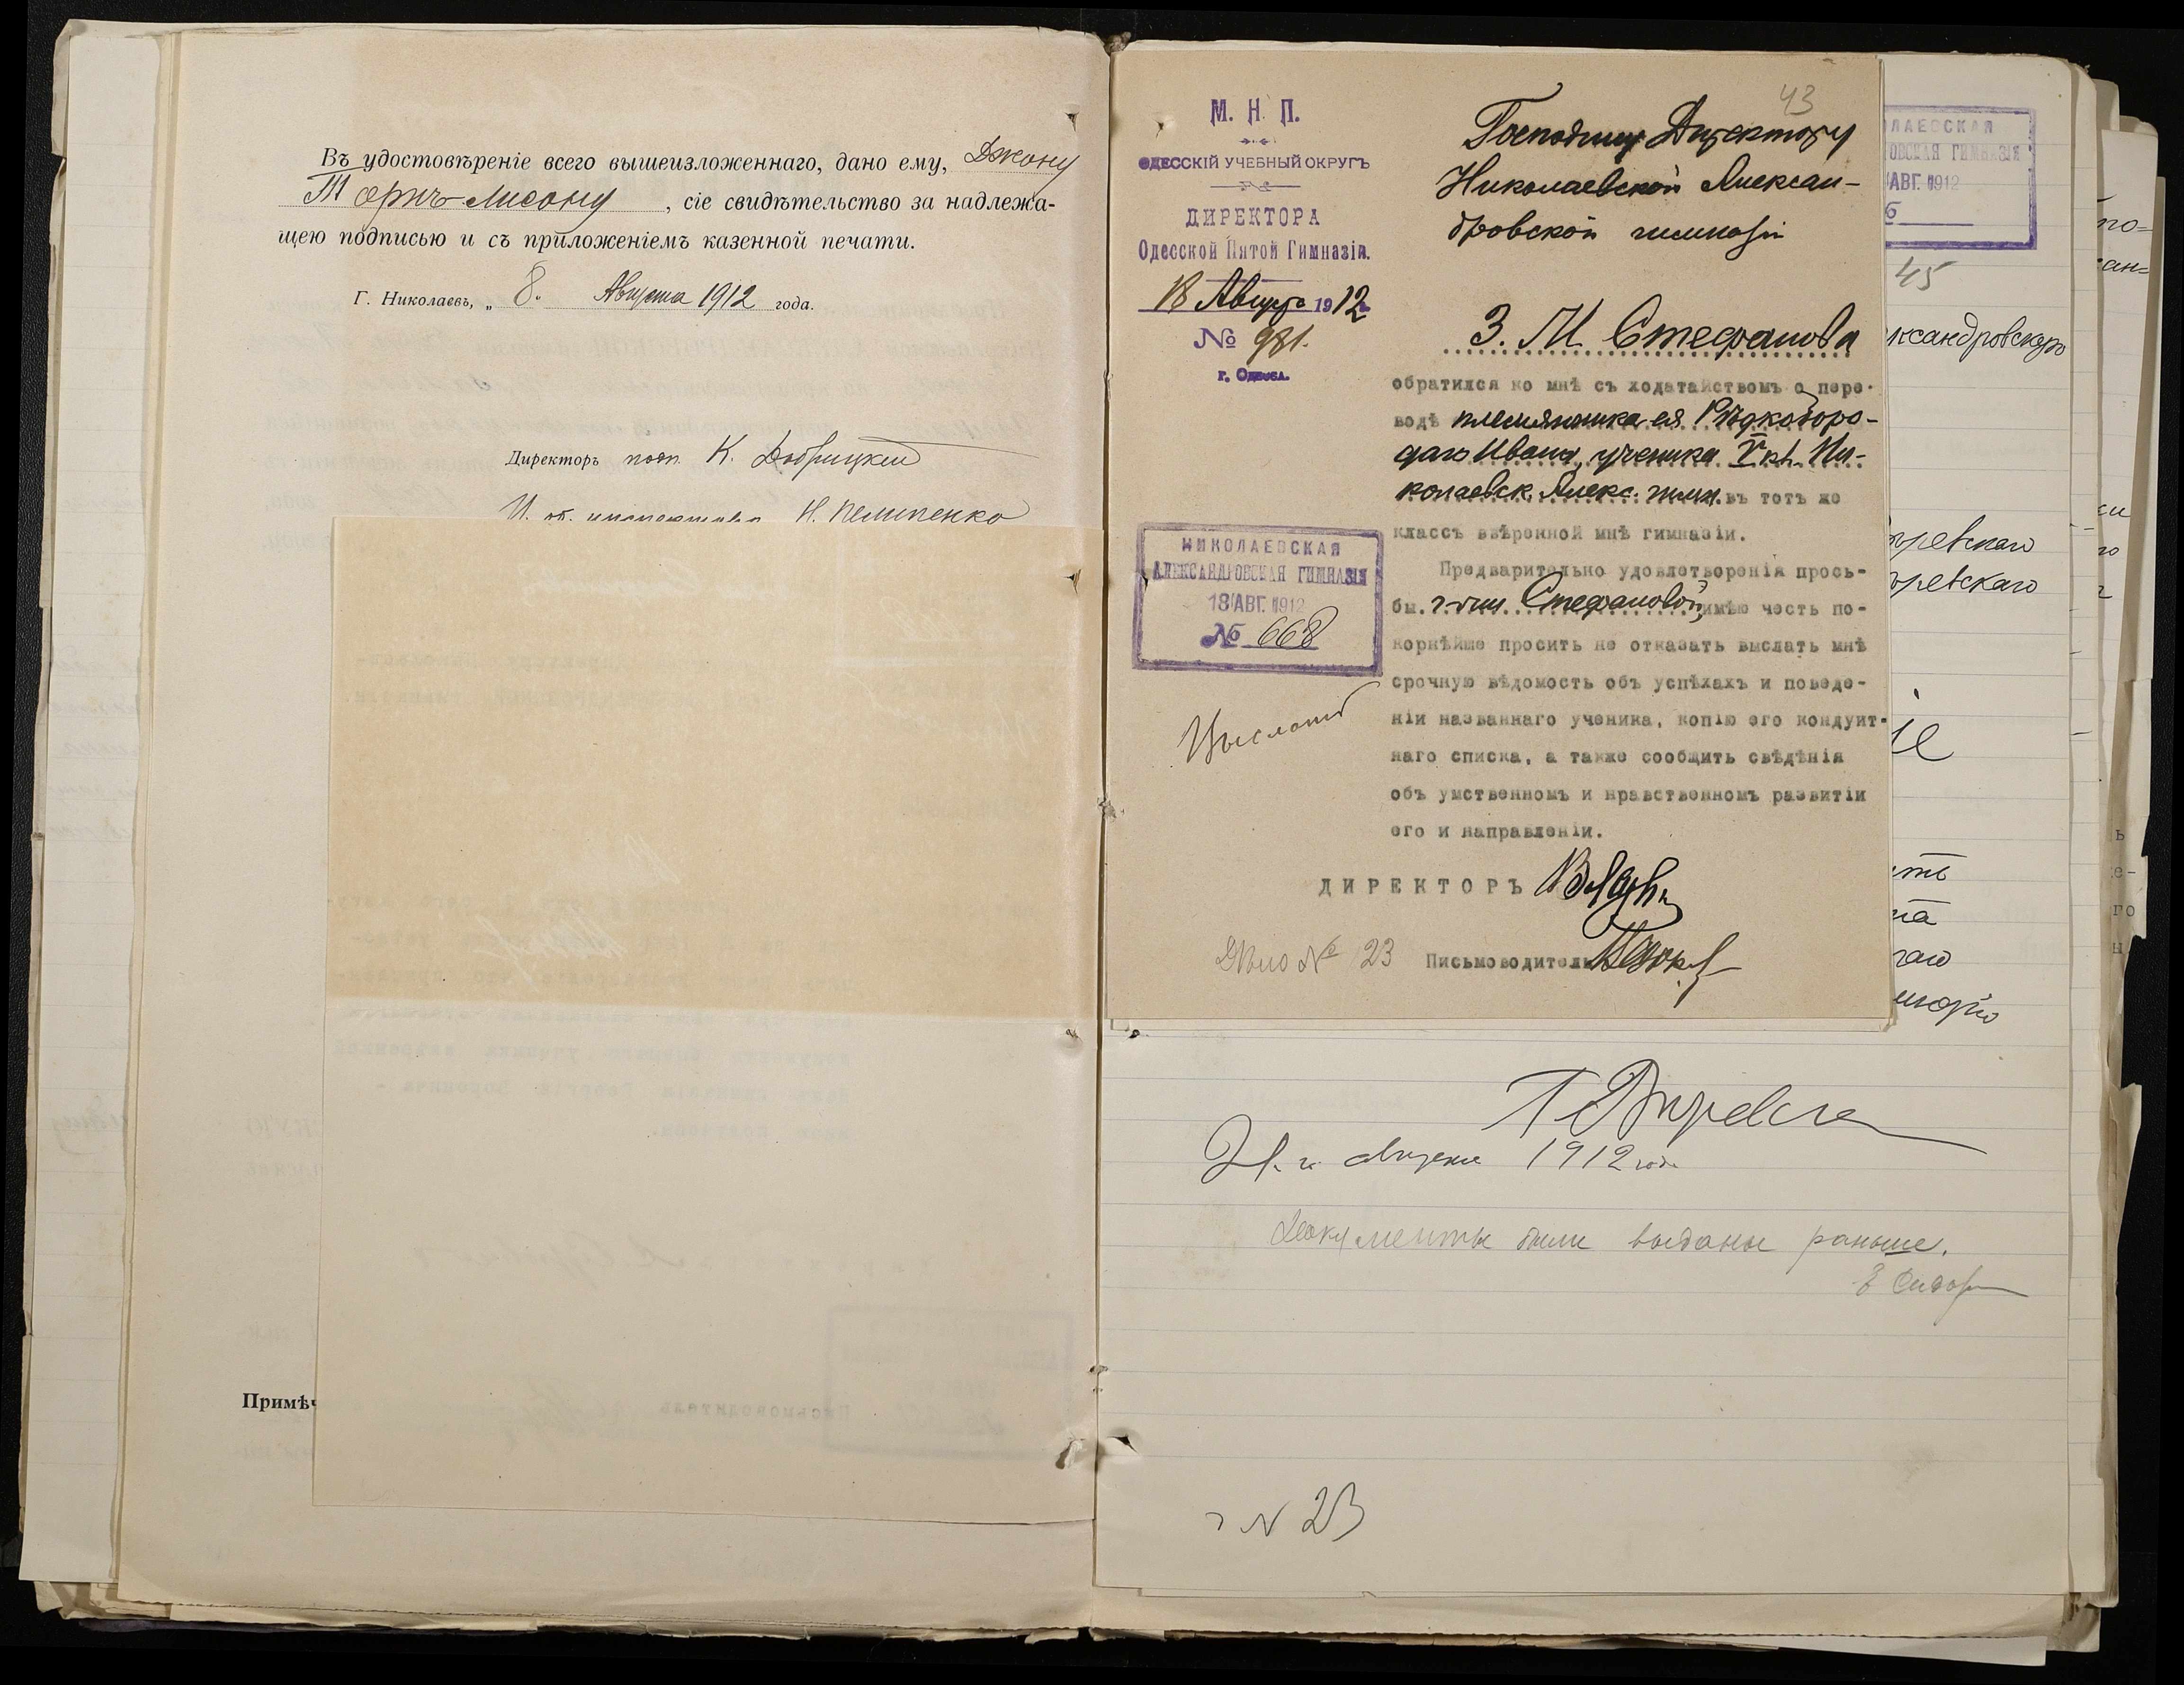 Въ удостовѣреніе всего вышеизложеннаго, дано ему, Джону
Торнъ-Лисону, сіе свидѣтельство за надлежа-
щею подписью и съ приложеніемъ казенной печати.
Г. Николаевъ, „ 8. Августа 1912 года.
Директоръ подп. К. Добрицкій
И. об. инспектора Н. Пелипенко
Примѣч
43
М. Н. П.
ОДЕССКІЙ УЧЕБНЫЙ ОКРУГЪ
ДИРЕКТОРА
Одесской Пятой Гимназіи.
18 Августа 1912
№ 981.
г. Одесса.
Господину Директору
Николаевской Алексан-
дровской гимназіи
З. М. Стефанова
обратился ко мнѣ съ ходатайствомъ о пере-
водѣ племянника ея Рѣдкоборо-
даго Ивана, ученика V кл. Ни-
колаевск. Алекс. гимн. въ тотъ же
классъ ввѣренной мнѣ гимназіи.
Предварительно удовлетворенія прось-
бы г-жи Стефановой, имѣю честь по-
корнѣйше просить не отказать выслать мнѣ
срочную вѣдомость объ успѣхахъ и поведе-
ніи названнаго ученика, копію его кондуит-
наго списка, а также сообщить свѣдѣнія
объ умственномъ и нравственномъ развитіи
его и направленіи.
ДИРЕКТОРЪ
Дѣло № 23 Письмоводитель
НИКОЛАЕВСКАЯ
АЛЕКСАНДРОВСКАЯ ГИМНАЗІЯ
18 АВГ. 1912
№ 668
Выслать
ЛАЕВСКАЯ
ОВСКАЯ ГИМНАЗІЯ
АВГ. 1912
45
ксандровскую
ревскаго
ревскаго
іе
ть
на
наго
1912 года
Документы были выданы раньше.
№ 23